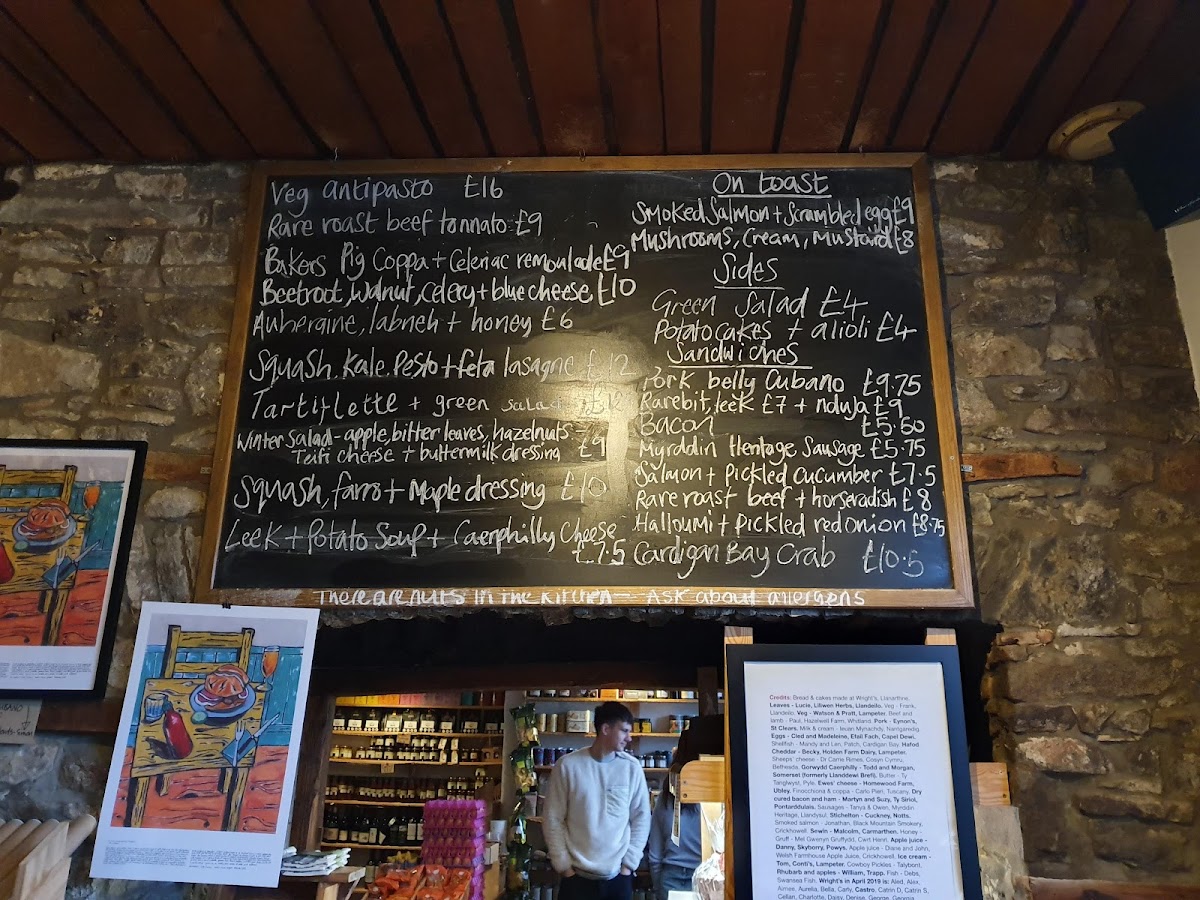 Veg antipasto £16
Rare roast beef tonnato £9
Bakers Pig Coppa + Celeriac remoulade £9
Beetroot, walnut, celery + blue cheese, £10
Aubergine, labneh + honey £6
Squash, Kale, Pesto + feta lasagne £12
Tartiflette + green salad £12
Winter Salad - apple, bitter leaves, hazelnuts -
Teifi cheese + buttermilk dressing £9
Squash, farro + Maple dressing £10
Leek + Potato Soup + Caerphilly Cheese
£7.5
On toast
Smoked Salmon + Scrambled egg £9
Mushrooms, Cream, Mustard £8
Sides
Green Salad £4
Potato cakes + alioli £4
Sandwiches
Pork belly Cubano £9.75
Rarebit, leek £7 + nduja £9
Bacon £5.50
Myrddin Heritage Sausage £5.75
Salmon + pickled cucumber £7.5
Rare roast beef + horseradish £8
Halloumi + pickled red onion £8.75
Cardigan Bay Crab £10.5
There are nuts in the kitchen - Ask about allergens
Credits: Bread & cakes made at Wright's, Llanarthne,
Leaves - Lucie, Liliwen Herbs, Llandeilo. Veg - Frank,
Llandeilo. Veg - Watson & Pratt, Lampeter. Beef and
lamb - Paul, Hazelwell Farm, Whitland. Pork - Eynon's,
St Clears. Milk & cream - Ieuan Mynachdy, Nantgaredig.
Eggs - Cled and Madeleine, Efail Fach, Capel Dewi.
Shellfish - Mandy and Len, Patch, Cardigan Bay. Hafod
Cheddar - Becky, Holden Farm Dairy, Lampeter.
Sheeps' cheese - Dr Carrie Rimes, Cosyn Cymru,
Bethesda. Gorwydd Caerphilly - Todd and Morgan,
Somerset (formerly Llanddewi Brefi). Butter - Ty
Tanglwyst, Pyle. Ewes' cheese - Homewood Farm,
Ubley. Finocchiona & coppa - Carlo Pieri, Tuscany. Dry
cured bacon and ham - Martyn and Suzy, Ty Siriol,
Pontarddulais. Sausages - Tanya & Owen, Myrddin
Heritage, Llandysul. Stichelton - Cuckney, Notts.
Smoked salmon - Jonathan, Black Mountain Smokery,
Crickhowell. Sewin - Malcolm, Carmarthen. Honey -
Gruff - Mel Gwenyn Gruffydd, Cwrt Henri. Apple juice -
Danny, Skyborry, Powys. Apple juice - Diane and John,
Welsh Farmhouse Apple Juice, Crickhowell. Ice cream -
Tom, Conti's, Lampeter. Cowboy Pickles - Talybont.
Rhubarb and apples - William, Trapp. Fish - Debs,
Swansea Fish. Wright's in April 2019 is: Aled, Alex,
Aimee, Aurelia, Bella, Carly, Castro, Catrin D, Catrin S,
Cellan, Charlotte, Daisy, Denise, George, Georgia